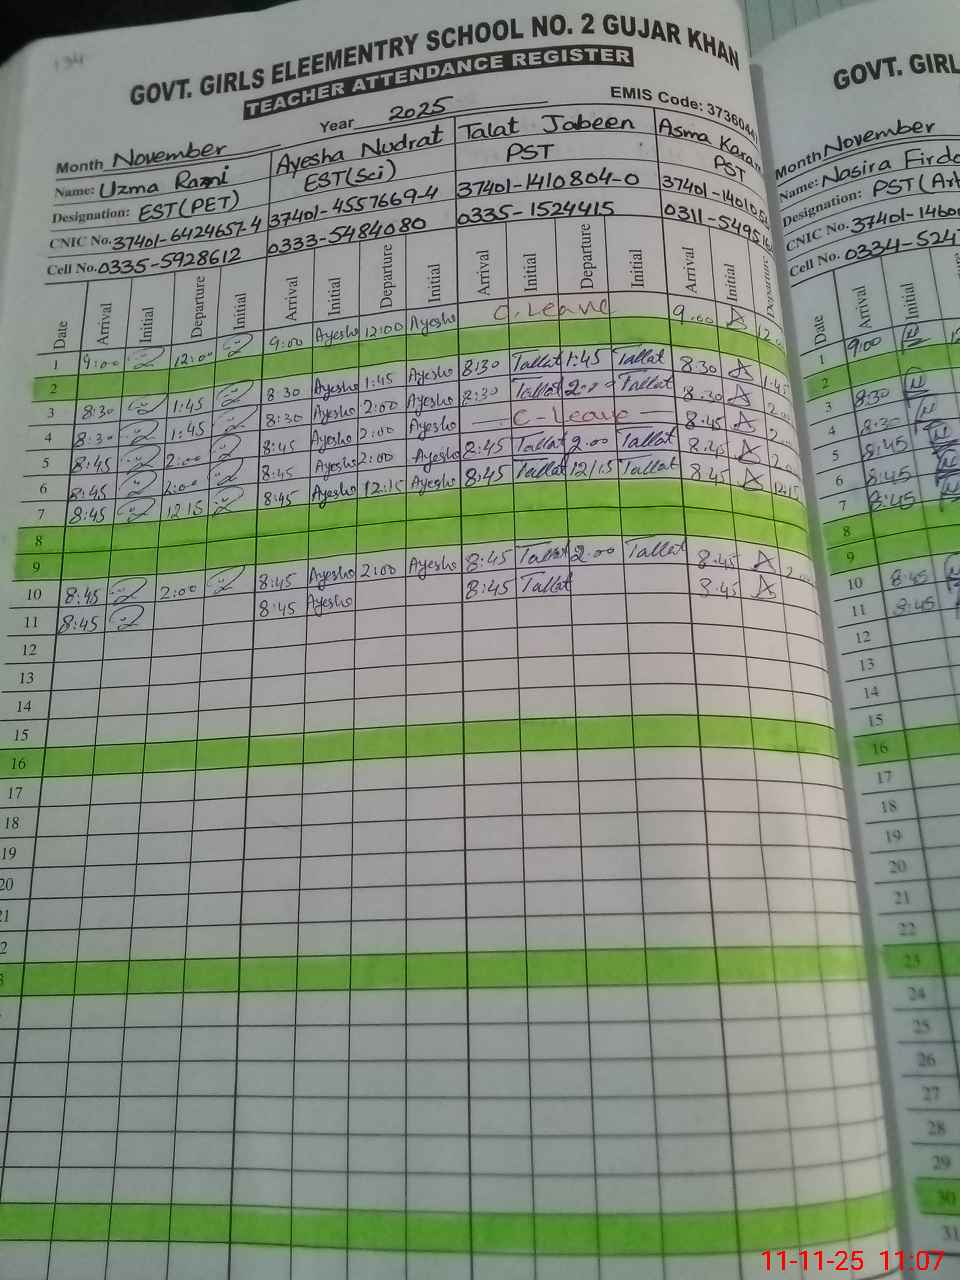 134
GOVT. GIRLS ELEEMENTRY SCHOOL NO. 2 GUJAR KHAN
TEACHER ATTENDANCE REGISTER
Month November Year 2025 EMIS Code: 3736044
Name: Uzma Razni Ayesha Nudrat Talat Jabeen Asma Karam
Designation: EST(PET) EST(Sci) PST PST
CNIC No. 37401-6424657-4 37401-4557669-4 37401-1410804-0 37401-140105
Cell No. 0335-5928612 0333-5484080 0335-1524415 0311-54951
Date Arrival Initial Departure Initial Arrival Initial Departure Initial Arrival Initial Departure Initial Arrival Initial Departure
1 9:00 12:00 9:00 Ayesha 12:00 Ayesha C. Leave 9.00 12
2
3 8:30 1:45 8 30 Ayesha 1:45 Ayesha 8:30 Tallat 1:45 Tallat 8.30 1:45
4 8:30 1:45 8:30 Ayesha 2:00 Ayesha 8:30 Tallat 2.00 Tallat 8:30 2
5 8:45 2:00 8:45 Ayesha 2:00 Ayesha C-Leave 8:45 2
6 8:45 2:00 8:45 Ayesha 2:00 Ayesha 8:45 Tallat 2.00 Tallat 8:45 2
7 8:45 12 15 8:45 Ayesha 12:15 Ayesha 8:45 Tallat 12/15 Tallat 8 45 12:15
8
9
10 8:45 2:00 8:45 Ayesha 2:00 Ayesha 8:45 Tallat 2.00 Tallat 8:45 2
11 8:45 8:45 Ayesha 8:45 Tallat 8.45
12
13
14
15
16
17
18
19
20
21
2
3
GOVT. GIRL
Month November
Name: Nasira Firdo
Designation: PST(Art
CNIC No. 37401-1460
Cell No. 0334-524
Date Arrival Initial
1 9:00
2
3 8:30
4 8:30
5 8:45
6 8:45
7 8:45
8
9
10 8:45
11 8:45
12
13
14
15
16
17
18
19
20
21
22
23
24
25
26
27
28
29
30
31
11-11-25 11:07